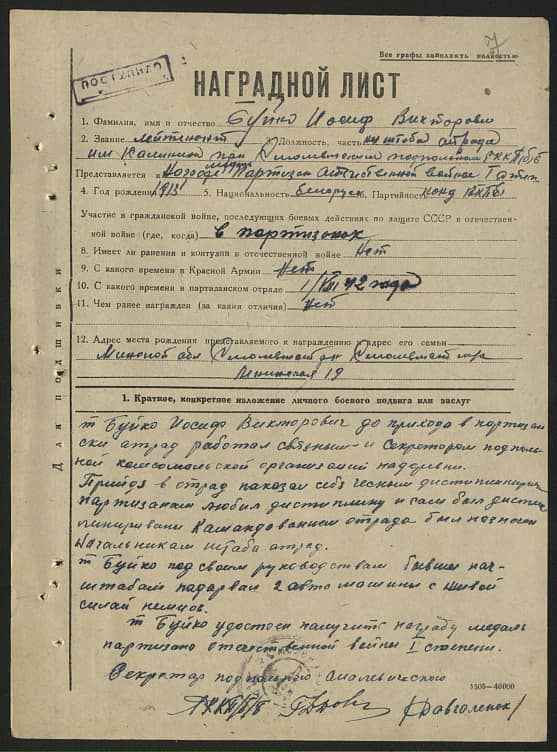 7
Все графы заполнять полностью
ПОСТУПИЛО
НАГРАДНОЙ ЛИСТ
1. Фамилия, имя и отчество Буйко Иосиф Викторович
2. Звание лейтенант 3. Должность, часть нш штаба атрада
им Калинина при Смолевичском подпольном РККП/б/Б
Представляется к награде медаль Партизан атечественной войны I степ
4. Год рождения 1915 5. Национальность Белорус 6. Партийность канд ВКП/б/
Участие в гражданской войне, последующих боевых действиях по защите СССР в отечествен-
ной войне (где, когда) в партизанах
8. Имеет ли ранения и контузии в отечественной войне Нет
9. С какого времени в Красной Армии Нет
10. С какого времени в партизанском отряде 1/VIII 42 года
11. Чем ранее награжден (за какия отличия) Нет
12. Адрес места рождения представляемого к награждению и адрес его семьи
Минской обл Смолевичский р-н Смолевичи
Ленинская 19
Для подшивки
1. Краткое, конкретное изложение личного боевого подвига или заслуг
т Буйко Иосиф Викторович до прихода в партизан
ски атрад работал связным и Секретором подполь
ной комсомольской организаций надеревни.
Прийдя в отрад показал себя чесным дистиплинир
партизанам любил дистиплину и сам был дистип
линировани Камандованием отрада был назначен
Начальникам штаба атрад.
т Буйко под своим руководствам бывши нач-
штабам падарвал 2 авто машины с живой
силай немцов.
т Буйко удостоен палучить награду медаль
партизана отечественной войны I степени.
Секретар подпольного Смалевического
РККП/б/Б (Давгаленок)
1505-40000